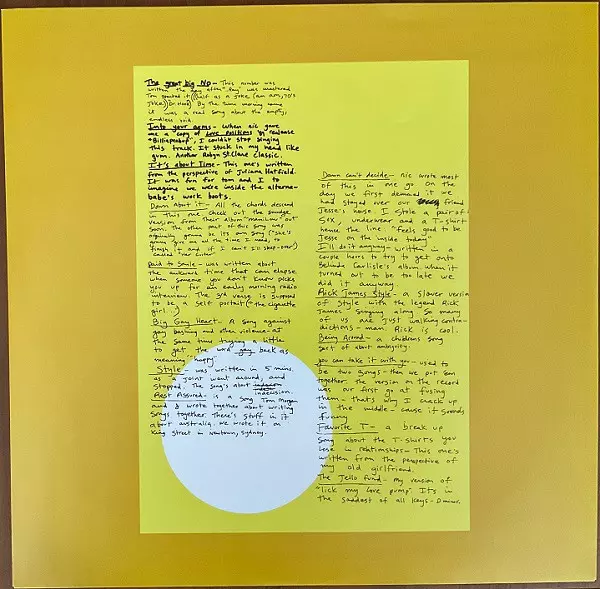 The great big No - This number was
written the day after "Ray" was mastered
Tom started it (half as a joke (an am, 70's
Joke) Dr. Hook) By the time morning came
it was a real song about the empty,
endless void.
Into your arms - When nic gave
me a copy of Love Positions 
"Billiepeebup", I couldn't stop singing
this track. It stuck in my head like
gum. Another Robyn St.Clare classic.
It's about Time - This one's written
from the perspective of Juliana Hatfield.
It was fun for tom and I to
imagine we were inside the alterna-
babe's work boots.
Down about it - All the chords descend
in this one check out the smudge
version from Their Album "Manilow" out
soon. The other part of this song was
originally gonna be its own song ("she's
gonna give me all the time I need, to
finish it and if I can't I'll stop over")
called
Paid to Smile - was written about
the awkward time that can elapse
when someone you don't know picks
you up for an early morning radio
interview. The 3rd verse is supposed
to be a self portrait ("the cigarette
girl..)
Big Gay Heart - A song against
gay bashing and other violence - at
the same time trying a little
to get the word gay back as
meaning happy.
Style - was written in 5 mins.
as a joint went around, and
stopped. The song's about
indecision.
Rest Assured - is a song Tom Morgan
and I wrote together about writing
songs together. There's stuff in it
about australia. We wrote it on
King street in Newtown, Sydney.
Dawn can't decide - nic wrote most
of this in one go on the
day we first demoed it we
had stayed over our friend
Jesse's house I stole a pair of
Sox, underwear and a T-shirt
hence the line "feels good to be
Jesse on the inside today"
I'll do it anyway - written in a
couple hours to try to get onto
Belinda Carlisle's album when it
turned out to be too late we
did it anyway.
Rick James Style - a slower version
of Style with the legend Rick
James singing along so many
of us are just walking contra-
dictions - man, Rick is cool.
Being Around - a childrens song
sort of about ambiguity.
you can take it with you - used to
be two songs - then we put em
together the version on the record
was our first go at fusing
them - that's why I crack up
in the middle - cause it sounds
funny
Favorite T - a break up
song about the T-shirts you
lose in relationships - This one's
written from the perspective of
my old girlfriend.
The Jello Fund - my version of
"lick my love pump". It's in
the saddest of all keys - D minor.